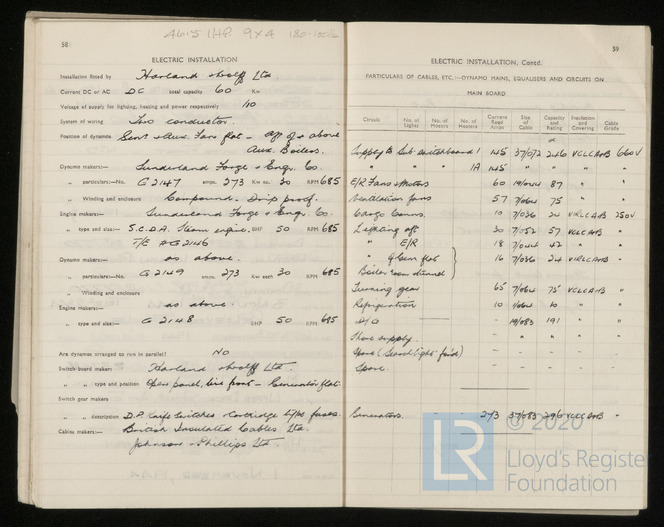 58
ELECTRIC INSTALLATION
Installation fitted by Harland & Wolff Ltd
Current DC or AC DC total capacity 60 Kw
Voltage of supply for lighting, heating and power respectively 110
System of wiring Two conductor.
Position of dynamos Gen + Aux. Fans flat - aft of & above
Aux. Boilers.
Dynamo makers:— Sunderland Forge & Engr. Co.
„ particulars:—No. G 2147 amps. 273 Kw ea. 30 RPM 685
„ Winding and enclosure Compound. Drip proof.
Engine makers:— Sunderland Forge & Engr. Co.
„ type and size:— S.C.D.A. Steam engine. BHP 50 RPM 685
G 2146
Dynamo makers:— as above.
„ particulars:—No. G 2149 amps. 273 Kw each 30 RPM 685
„ Winding and enclosure
Engine makers:— as above
„ type and size:— G 2148 BHP 50 RPM 685
Are dynamos arranged to run in parallel? No
Switch board makers Harland & Wolff Ltd.
„ „ type and position Open panel, live front - Generator flat.
Switch gear makers
„ „ description D.P. knife switches - Cartridge type fuses.
Cable makers:— British Insulated Cables Ltd.
Johnson & Phillips Ltd.
59
ELECTRIC INSTALLATION, Contd.
PARTICULARS OF CABLES, ETC.:—DYNAMO MAINS, EQUALISERS AND CIRCUITS ON
MAIN BOARD
Circuits No. of Lights No. of Motors No. of Heaters Current Reqd. Amps Size of Cable Capacity and Rating Insulation and Covering Cable Grade
Supply to Sub-switchboard 1 145 37/072 246 VCLCA&B 660V
„ „ 1A 145 „ „ „ „
E/R Fans & Motors 60 19/044 87 „ „
Ventilation fans 57 7/064 75 „ „
Cargo 10 7/036 24 VIRLCA&B 250V
Lighting aft 30 7/052 57 VCLCA&B „
„ E/R 18 7/044 42 „ „
„ Gen flat 16 7/036 24 VIRLCA&B „
Boiler room & tunnel
Turning gear 65 7/064 75 VCLCA&B „
Refrigeration 10 1/064 10 „ „
19/083 191 „ „
Shore supply.
Spare (Searchlight fwd)
Spare.
Generators. 273 37/083 296 VCLCA&B „
LR
© 2020
Lloyd's Register
Foundation